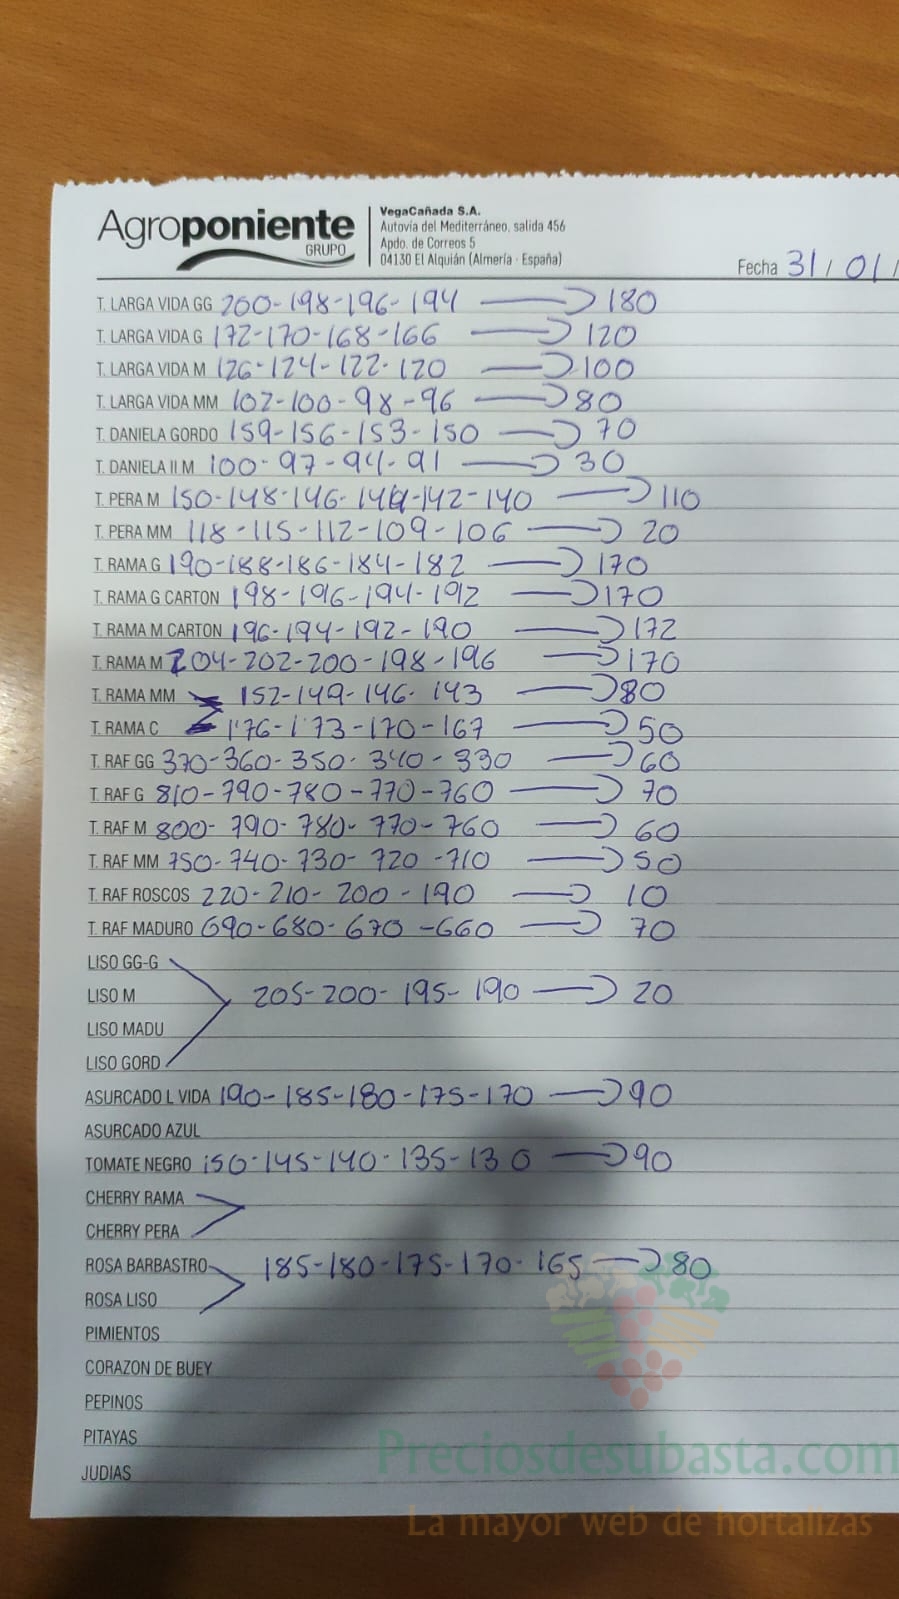 Agroponiente
GRUPO
VegaCañada S.A.
Autovía del Mediterráneo, salida 456
Apdo. de Correos 5
04130 El Alquián (Almería - España)
Fecha 31/01/
T. LARGA VIDA GG 200-198-196-194 → 180
T. LARGA VIDA G 172-170-168-166 → 120
T. LARGA VIDA M 126-124-122-120 → 100
T. LARGA VIDA MM 102-100-98-96 → 80
T. DANIELA GORDO 159-156-153-150 → 70
T. DANIELA II M 100-97-94-91 → 30
T. PERA M 150-148-146-144-142-140 → 110
T. PERA MM 118-115-112-109-106 → 20
T. RAMA G 190-188-186-184-182 → 170
T. RAMA G CARTON 198-196-194-192 → 170
T. RAMA M CARTON 196-194-192-190 → 172
T. RAMA M 204-202-200-198-196 → 170
T. RAMA MM 152-149-146-143 → 80
T. RAMA C 176-173-170-167 → 50
T. RAF GG 370-360-350-340-330 → 60
T. RAF G 810-790-780-770-760 → 70
T. RAF M 800-790-780-770-760 → 60
T. RAF MM 750-740-730-720-710 → 50
T. RAF ROSCOS 220-210-200-190 → 10
T. RAF MADURO 690-680-670-660 → 70
LISO GG-G
LISO M 205-200-195-190 → 20
LISO MADU
LISO GORD
ASURCADO L VIDA 190-185-180-175-170 → 90
ASURCADO AZUL
TOMATE NEGRO 150-145-140-135-130 → 90
CHERRY RAMA
CHERRY PERA
ROSA BARBASTRO 185-180-175-170-165 → 80
ROSA LISO
PIMIENTOS
CORAZON DE BUEY
PEPINOS
PITAYAS
JUDIAS
Preciosdesubasta.com
La mayor web de hortalizas